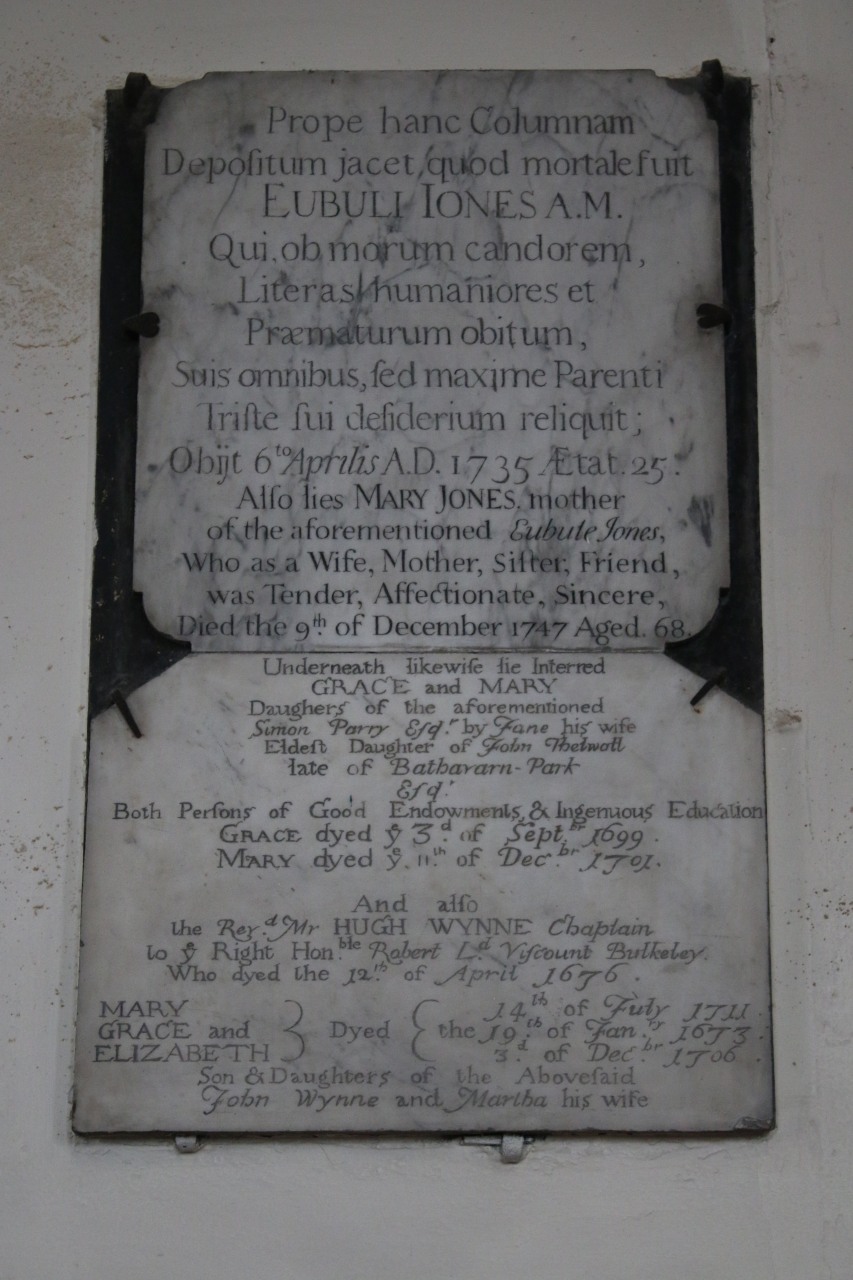 Prope hanc Columnam
Depoſitum jacet, quod mortale fuit
EUBULI IONES A.M.
Qui, ob morum candorem,
Literas humaniores et
Præmaturum obitum,
Suis omnibus, ſed maxime Parenti
Triſte ſui deſiderium reliquit;
Obijt 6to Aprilis A.D. 1735 Ætat. 25.
Alſo lies MARY JONES. mother
of the aforementioned Eubule Jones,
Who as a Wife, Mother, Siſter, Friend,
was Tender, Affectionate, Sincere,
Died the 9th. of December 1747 Aged. 68.
Underneath likewiſe lie Interred
GRACE and MARY
Daughers of the aforementioned
Simon Parry Eſq.r by Jane his wife
Eldeſt Daughter of John Thelwall
late of Bathavarn-Park
Eſq.r
Both Perſons of Good Endowments, & Ingenuous Education
GRACE dyed ye 3.d of Sept.br 1699.
MARY dyed ye. 11.th of Dec.br 1701.
And alſo
the Rev.d Mr HUGH WYNNE Chaplain
to ye Right Hon.ble Robert L.d Viſcount Bulkeley.
Who dyed the 12.th of April 1676.
MARY 14.th of July 1711.
GRACE and } Dyed { the 19.th of Jan.ry 1673.
ELIZABETH 3.d of Dec.br 1706.
Son & Daughters of the Aboveſaid
John Wynne and Martha his wife